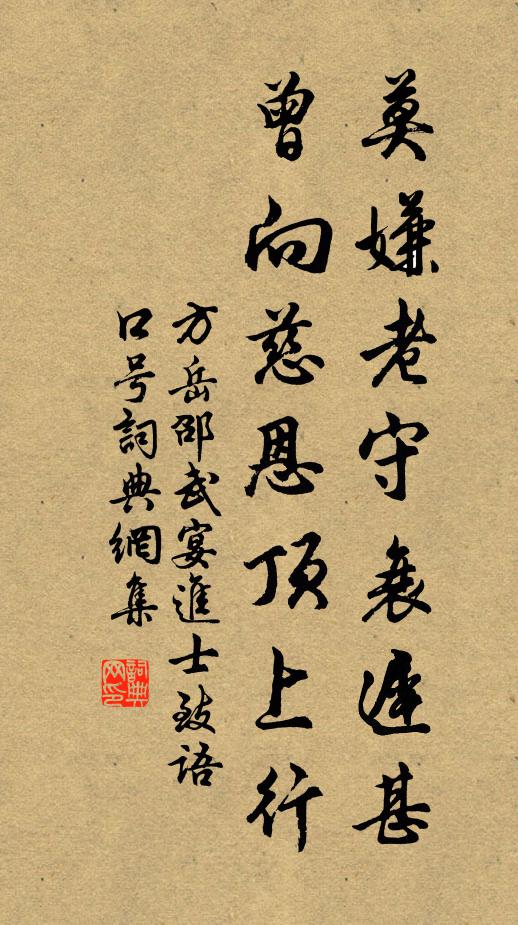 莫嫌老守衰遲甚
曾向慈恩頂上行
方岳邵武宴進士致語
口号詞典網集
詞典网印